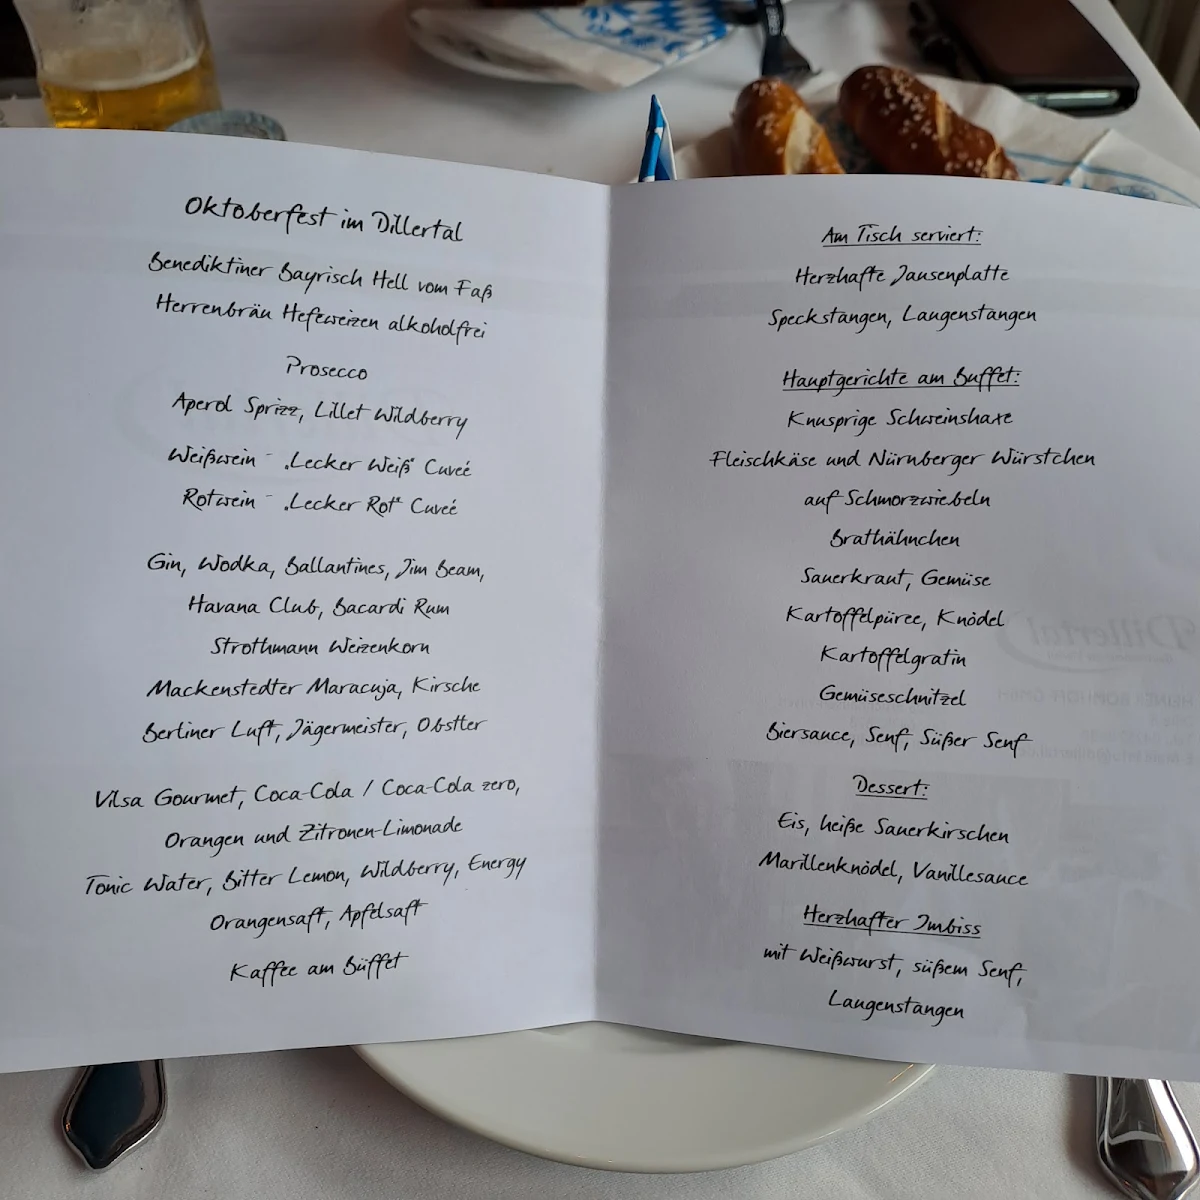 Oktoberfest im Dillertal
Benediktiner Bayrisch Hell vom Faß
Herrenbräu Hefeweizen alkoholfrei
Prosecco
Aperol Sprizz, Lillet Wildberry
Weißwein - "Lecker Weiß" Cuveé
Rotwein - "Lecker Rot" Cuveé
Gin, Wodka, Ballantines, Jim Beam,
Havana Club, Bacardi Rum
Strothmann Weizenkorn
Mackenstedter Maracuja, Kirsche
Berliner Luft, Jägermeister, Obstler
Vilsa Gourmet, Coca-Cola / Coca-Cola zero,
Orangen und Zitronen-Limonade
Tonic Water, Bitter Lemon, Wildberry, Energy
Orangensaft, Apfelsaft
Kaffee am Büffet
Am Tisch serviert:
Herzhafte Jausenplatte
Speckstangen, Laugenstangen
Hauptgerichte am Buffet:
Knusprige Schweinshaxe
Fleischkäse und Nürnberger Würstchen
auf Schmorzwiebeln
Brathähnchen
Sauerkraut, Gemüse
Kartoffelpüree, Knödel
Kartoffelgratin
Gemüseschnitzel
Biersauce, Senf, Süßer Senf
Dessert:
Eis, heiße Sauerkirschen
Marillenknödel, Vanillesauce
Herzhafter Imbiss
mit Weißwurst, süßem Senf,
Laugenstangen
Dillertal